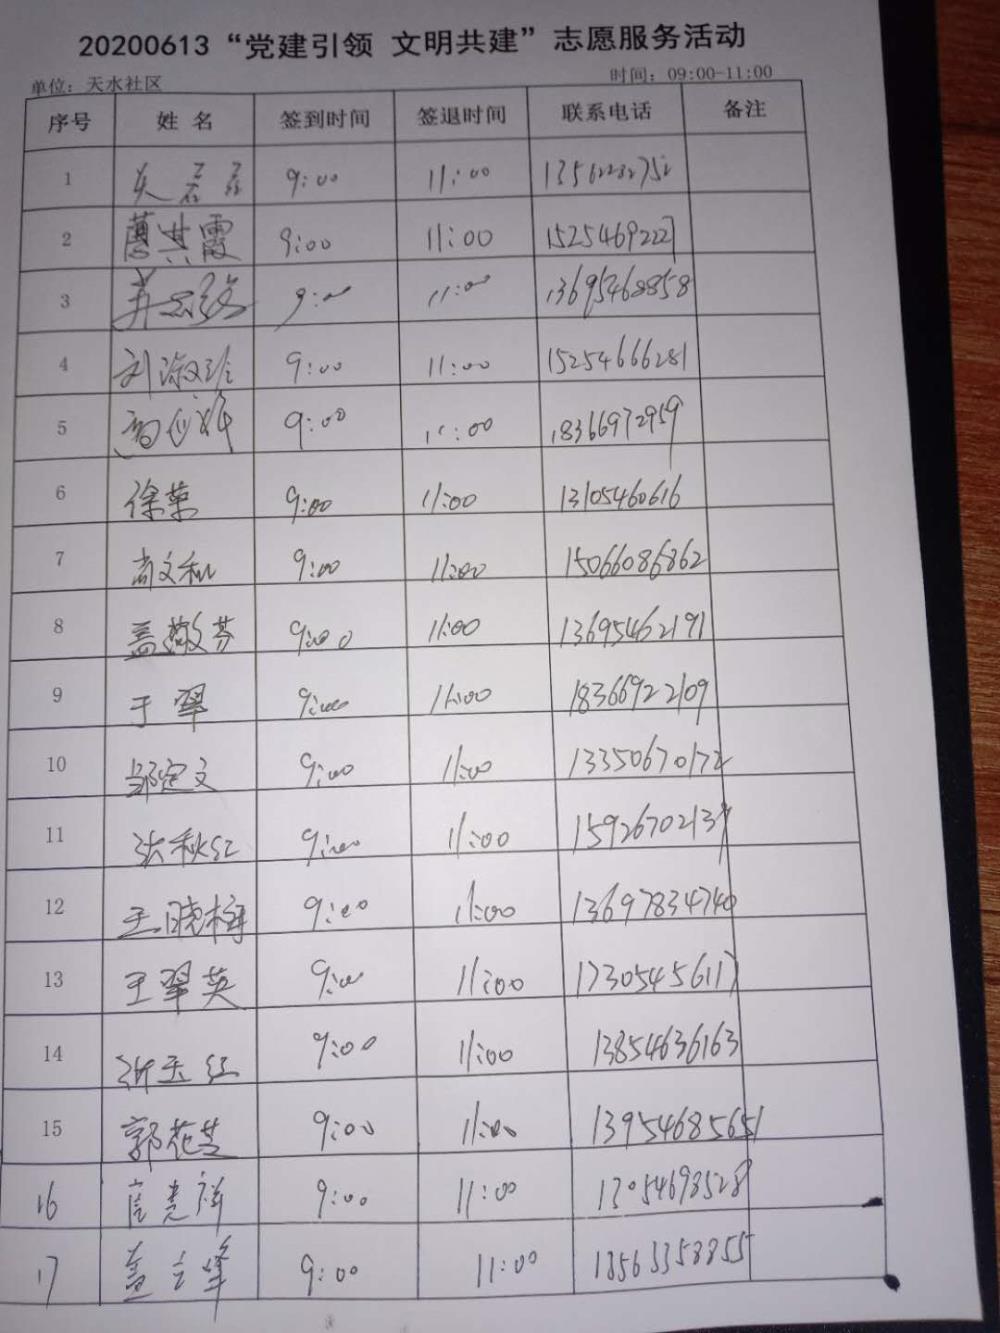 20200613“党建引领 文明共建”志愿服务活动
单位：天水社区 时间：09:00-11:00
序号 姓 名 签到时间 签退时间 联系电话 备注
1 9:00 11:00
2 薄其霞 9:00 11:00 15254692227
3 9:00 11:00 13695468858
4 刘淑玲 9:00 11:00 15254666281
5 9:00 11:00 18366972959
6 徐荣 9:00 11:00 13105460616
7 尚文和 9:00 11:00 15066086862
8 盖敬芬 9:00 11:00 13695462191
9 于翠 9:00 11:00 18366922109
10 邹定文 9:00 11:00 13350670172
11 张秋红 9:00 11:00 15926702139
12 王晓梅 9:00 11:00 13697834740
13 王翠英 9:00 11:00 17305456117
14 玉红 9:00 11:00 13854636163
15 郭花芝 9:00 11:00 13954685651
16 9:00 11:00 13054698528
17 9:00 11:00 18563358855